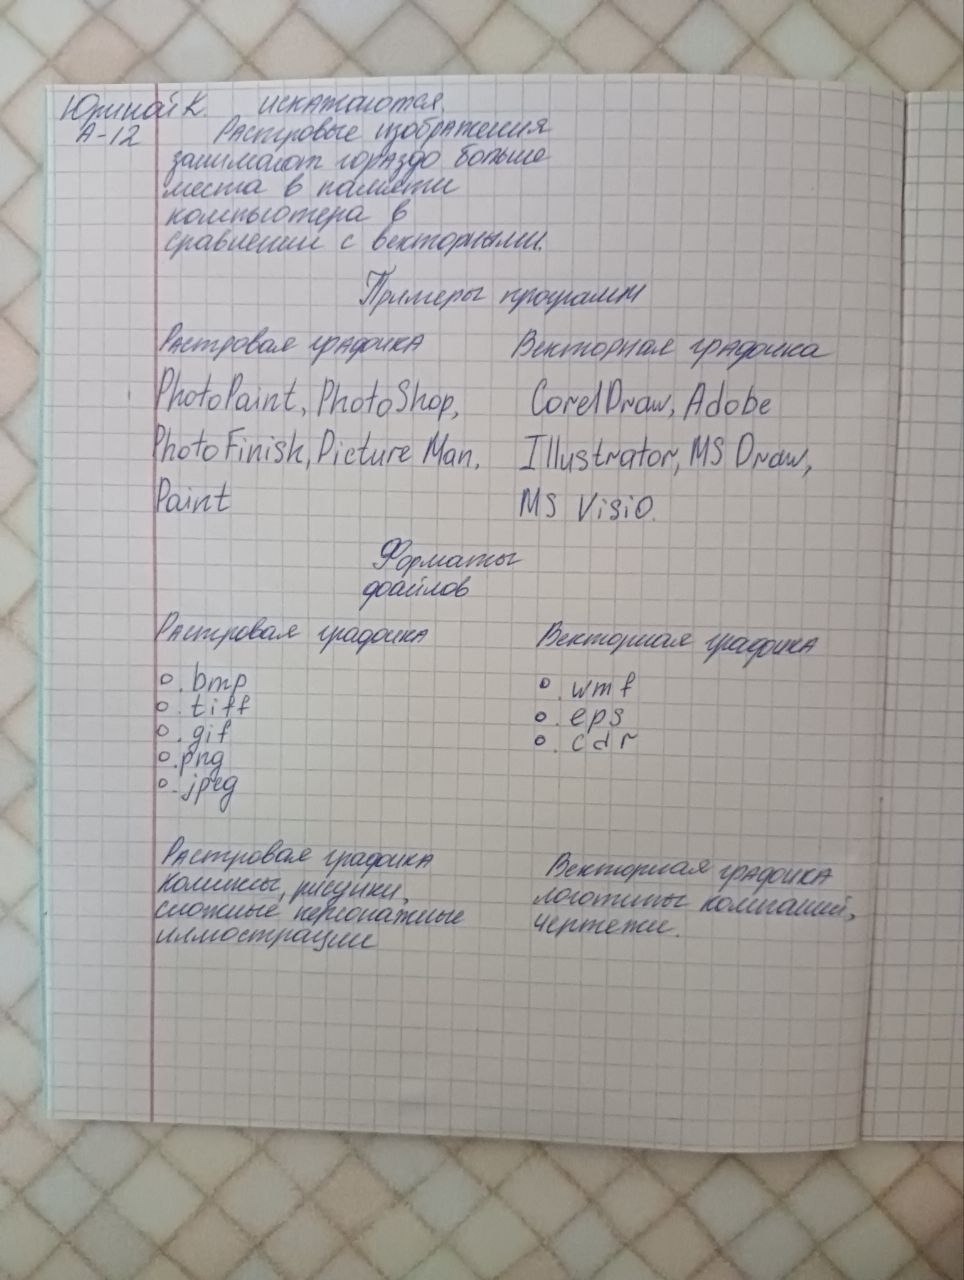 Юриной К. искажаются.
А-12 Растровые изображения
занимают гораздо больше
места в памяти
компьютера в
сравнении с векторными.
Примеры программ
Растровая графика Векторная графика
PhotoPaint, PhotoShop, CorelDraw, Adobe
PhotoFinish, Picture Man, Illustrator, MS Draw,
Paint MS Visio.
Форматы
файлов
Растровая графика Векторная графика
.bmp .wmf
.tiff .eps
.gif .cdr
.png
.jpeg
Растровая графика Векторная графика
комиксы, рисунки, логотипы компаний,
сложные персонажные чертежи.
иллюстрации